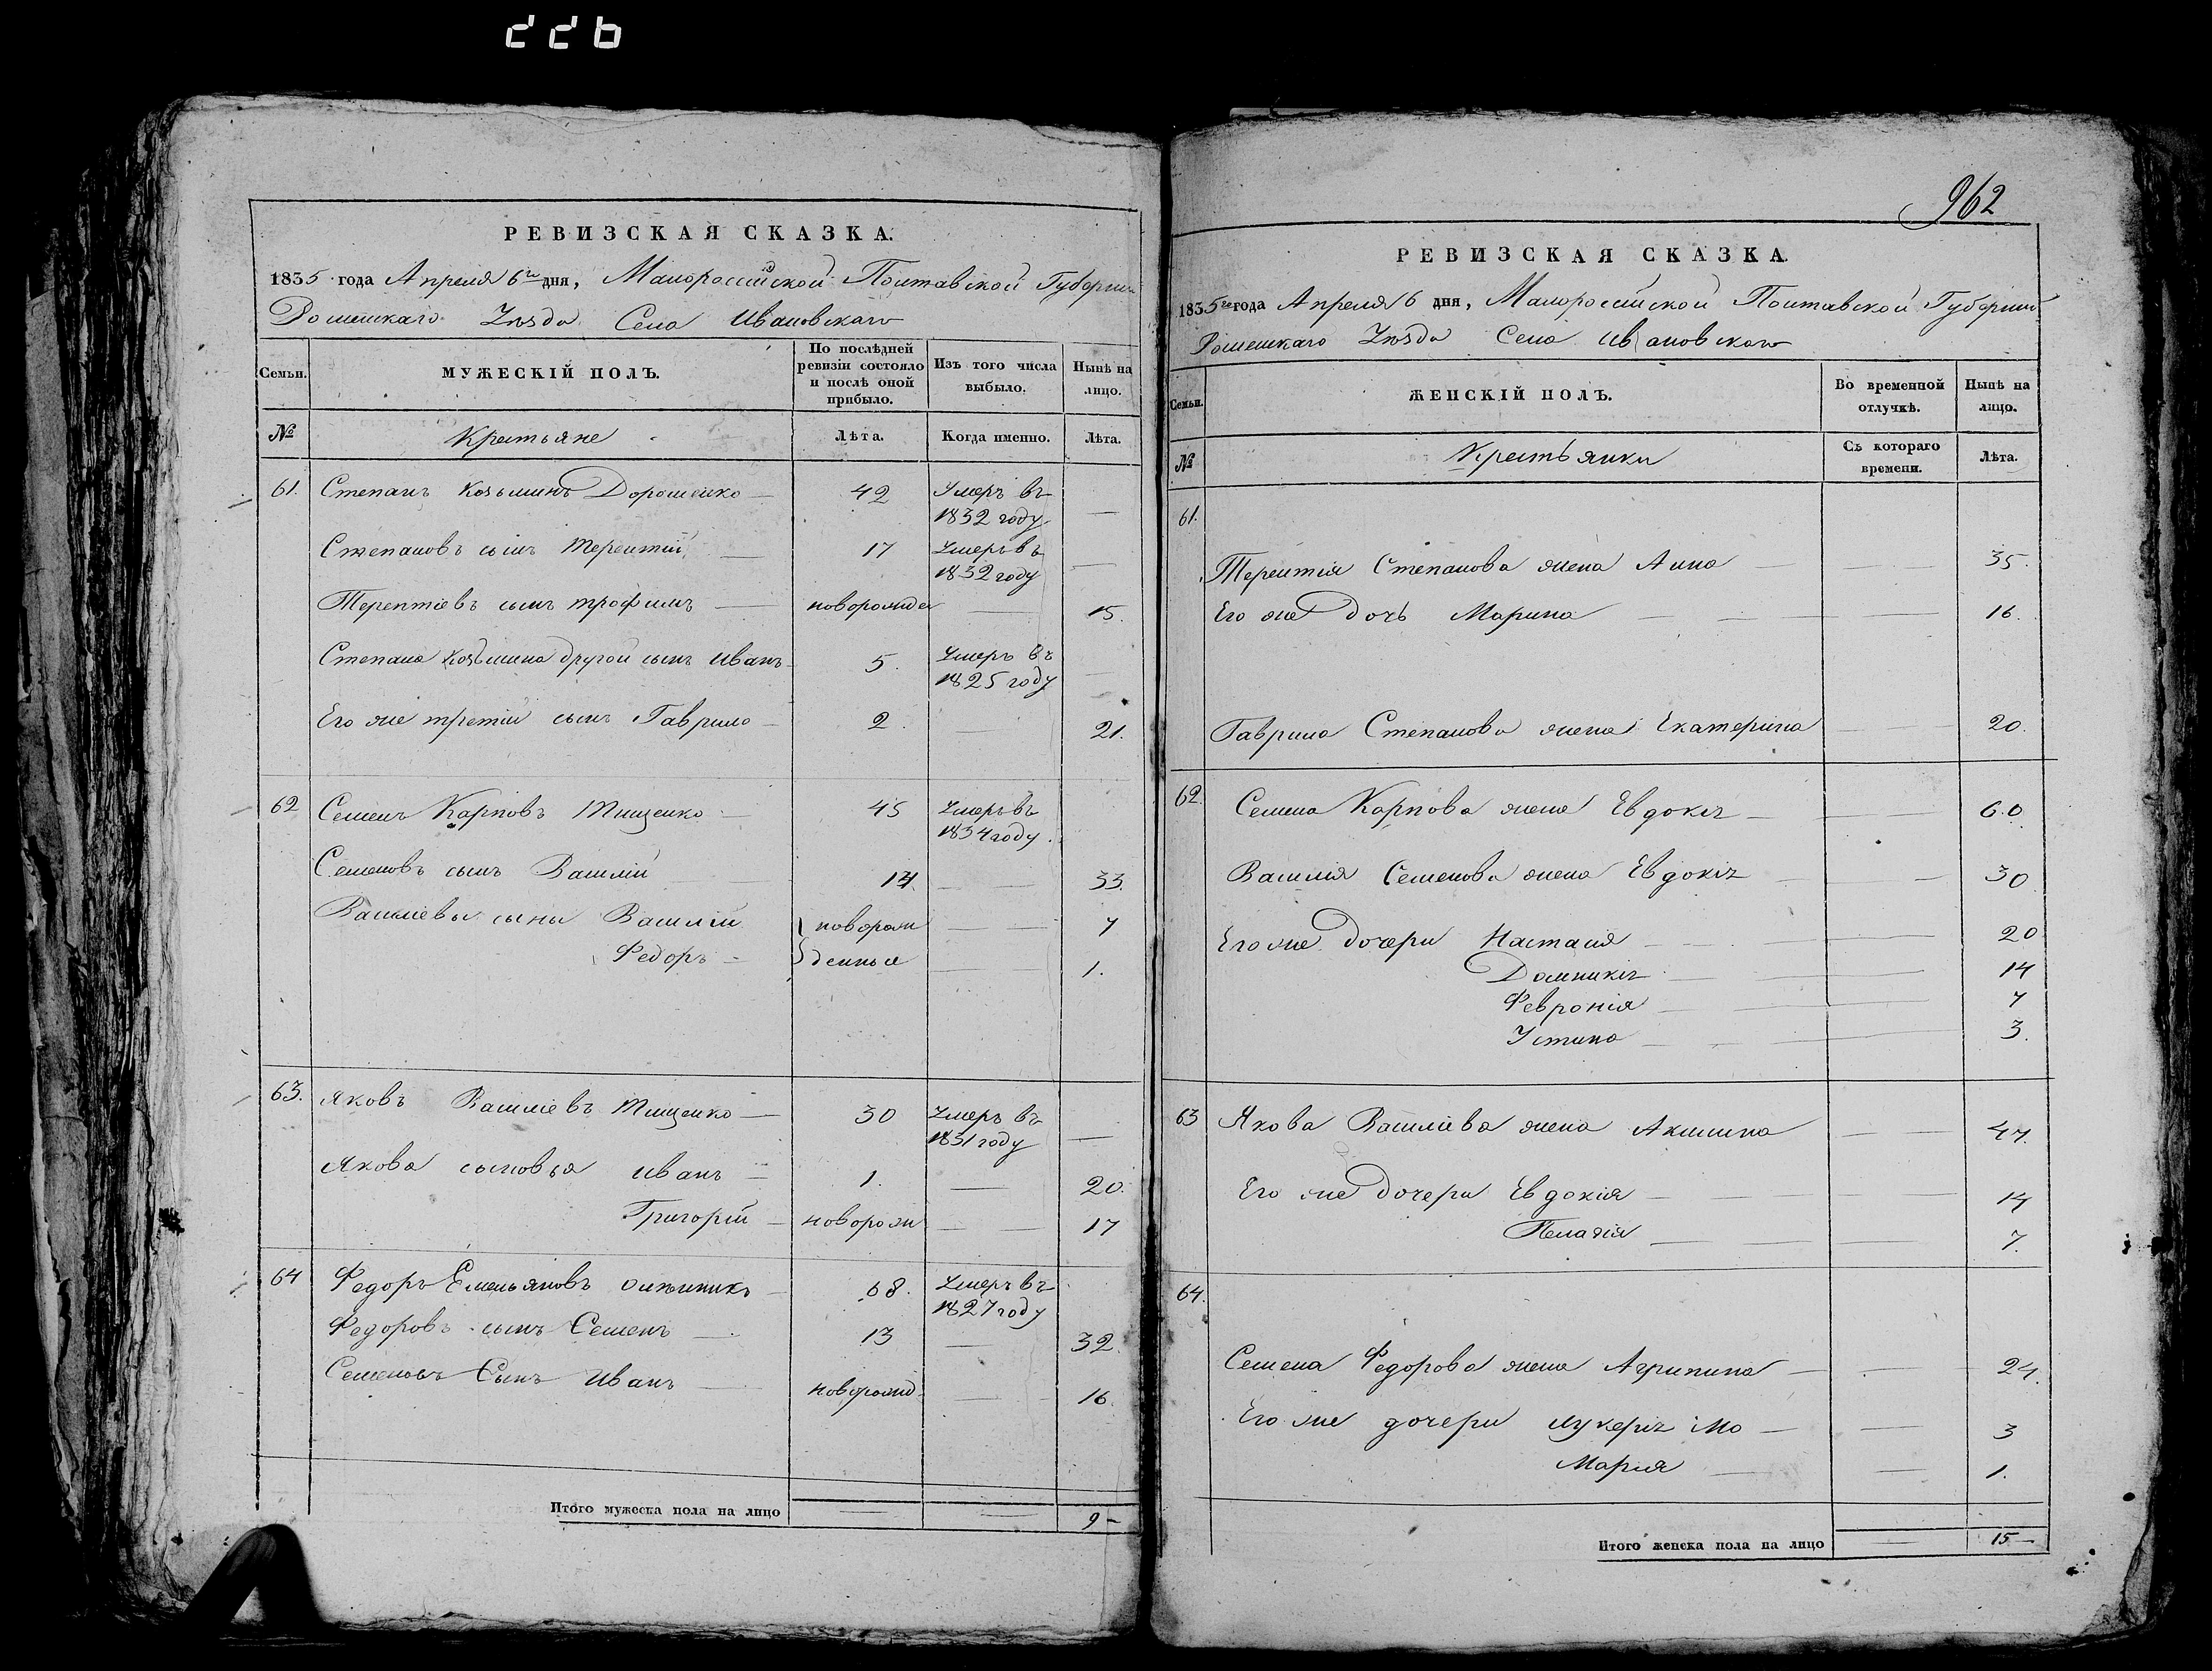 226
РЕВИЗСКАЯ СКАЗКА.
1835 года Апреля 6го дня, Малороссийской Полтавской Губернии
Роменскаго Уѣзда Села Ивановскаго
Семьи.
МУЖЕСКІЙ ПОЛЪ.
По послѣдней ревизіи состояло и послѣ оной прибыло.
Изъ того числа выбыло.
Нынѣ на лицо.
№
Крестьяне
Лѣта.
Когда именно.
Лѣта.
61. Степанъ Козьминъ Дорошенко — 42 Умеръ въ 1832 году —
Степановъ сынъ Терентий — 17 Умеръ въ 1832 году —
Терентіевъ сынъ Трофимъ — новорожден — 15.
Степана Козьмина другой сынъ Иванъ 5. Умеръ въ 1825 году —
Его же третий сынъ Гаврило — 2. — 21.
62 Семенъ Карповъ Тищенко — 45 Умеръ въ 1834 году.
Семеновъ сынъ Василий — 14 — 33.
Василіевы сыны Василий новорож — 7
Федоръ — денные — 1.
63. Яковъ Василіевъ Тищенко — 30 Умеръ въ 1831 году —
Якова сыновья Иванъ — 1. — 20.
Григорій — новорож — 17
64 Федоръ Емельяновъ Олейникъ — 68. Умеръ въ 1827 году
Федоровъ сынъ Семенъ — 13 — 32.
Семеновъ Сынъ Иванъ — новорожд — 16.
Итого мужеска пола на лицо — — 9 —
962
РЕВИЗСКАЯ СКАЗКА.
1835го года Апреля 6 дня, Малоросийской Полтавской Губернии
Роменскаго Уѣзда Села Ивановскаго
Семьи.
ЖЕНСКІЙ ПОЛЪ.
Во временной отлучкѣ.
Нынѣ на лицо.
№
Крестьянки
Съ котораго времени.
Лѣта.
61.
Терентія Степанова жена Анна — — 35.
Его же дочь Марина — — 16.
Гаврила Степанова жена Екатерина — 20.
62. Семена Карпова жена Евдокія — — 60.
Василія Семенова жена Евдокія — — 30
Его же дочери Настасія — — 20
Домникія — — 14
Февронія — — 7
Устина — — 3.
63 Якова Василіева жена Акилина — 47.
Его же дочери Евдокія — — 14
Пелагія — — 7.
64.
Семена Федорова жена Агрипина — — 24.
Его же дочери Лукерія — — 3
Мария — — 1.
Итого женска пола на лицо — 15 —